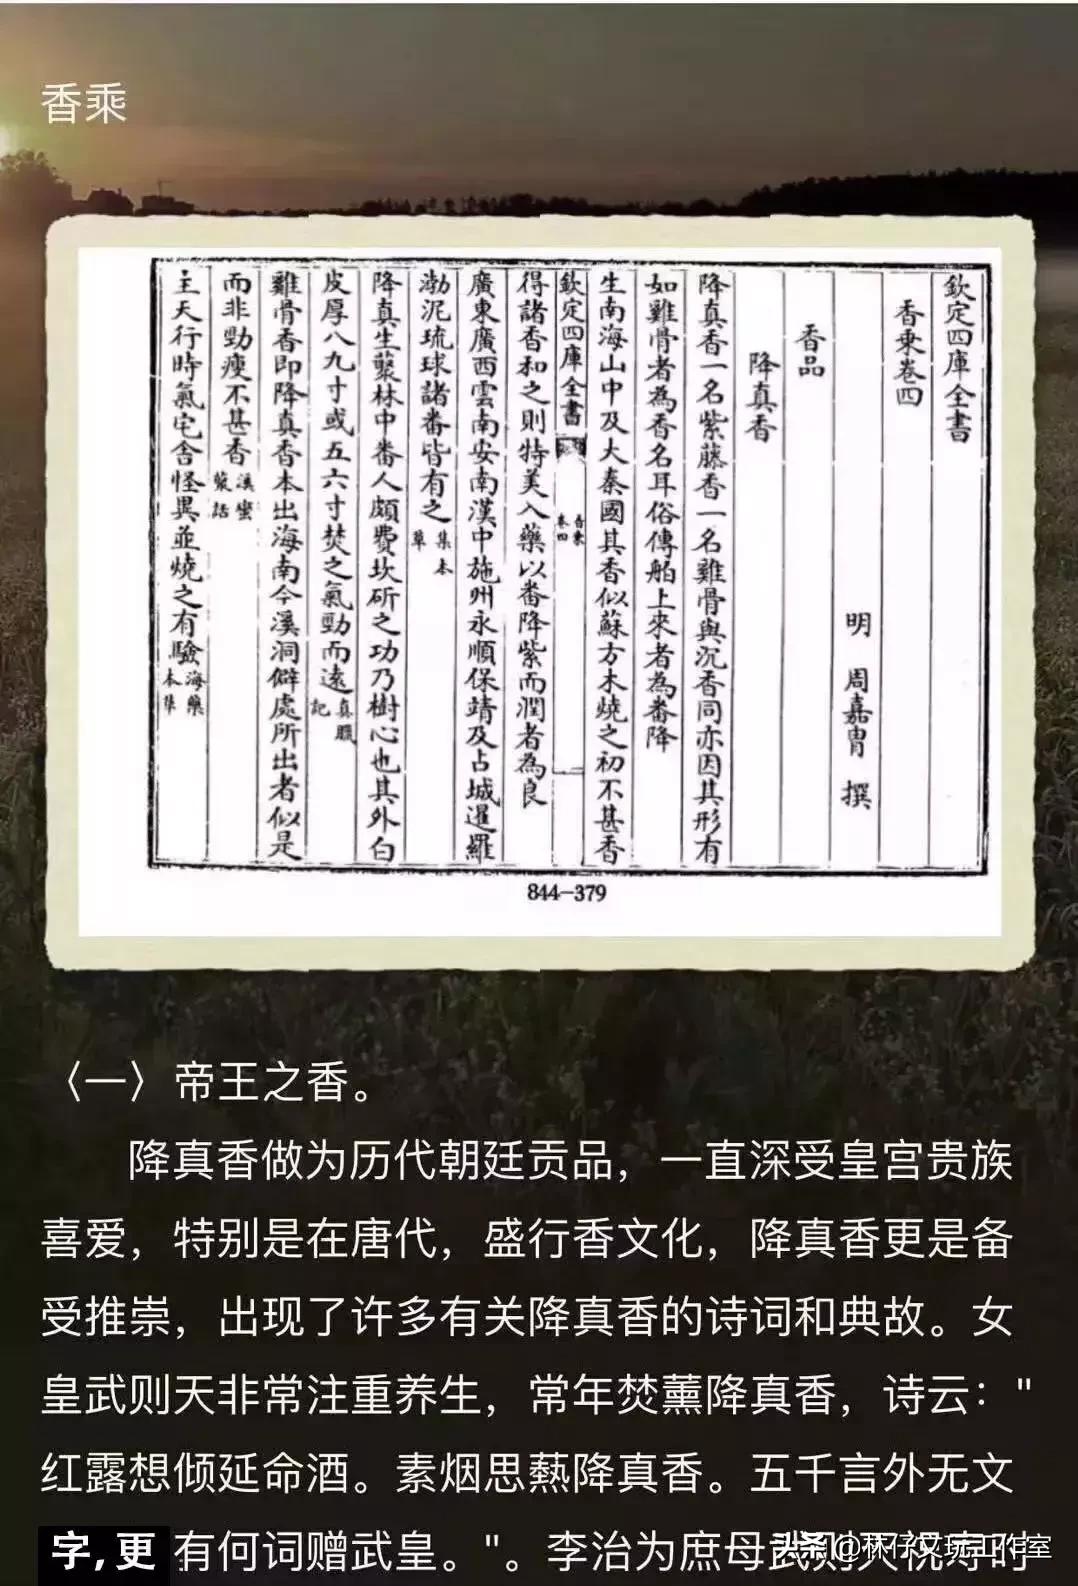 香乘
欽定四庫全書
香乘卷四
明 周嘉胄 撰
香品
降真香
降真香一名紫藤香一名雞骨與沉香同亦因其形有
如雞骨者為香名耳俗傳舶上來者為番降
生南海山中及大秦國其香似蘇方木燒之初不甚香
欽定四庫全書
香乘
卷四
得諸香和之則特美入藥以番降紫而潤者為良
廣東廣西雲南安南漢中施州永順保靖及占城暹羅
渤泥琉球諸番皆有之 集本
草
降真生藂林中番人頗費坎斫之功乃樹心也其外白
皮厚八九寸或五六寸焚之氣勁而遠 真臘
記
雞骨香即降真香本出海南今溪洞僻處所出者似是
而非勁瘦不甚香 溪蠻
叢話
主天行時氣宅舍怪異並燒之有驗 海藥
本草
844-379
〈一〉帝王之香。
降真香做为历代朝廷贡品，一直深受皇宫贵族
喜爱，特别是在唐代，盛行香文化，降真香更是备
受推崇，出现了许多有关降真香的诗词和典故。女
皇武则天非常注重养生，常年焚薰降真香，诗云："
红露想倾延命酒。素烟思爇降真香。五千言外无文
字,更有何词赠武皇。"。李治为庶母武则天祝寿时
头条@林仔文玩工作室